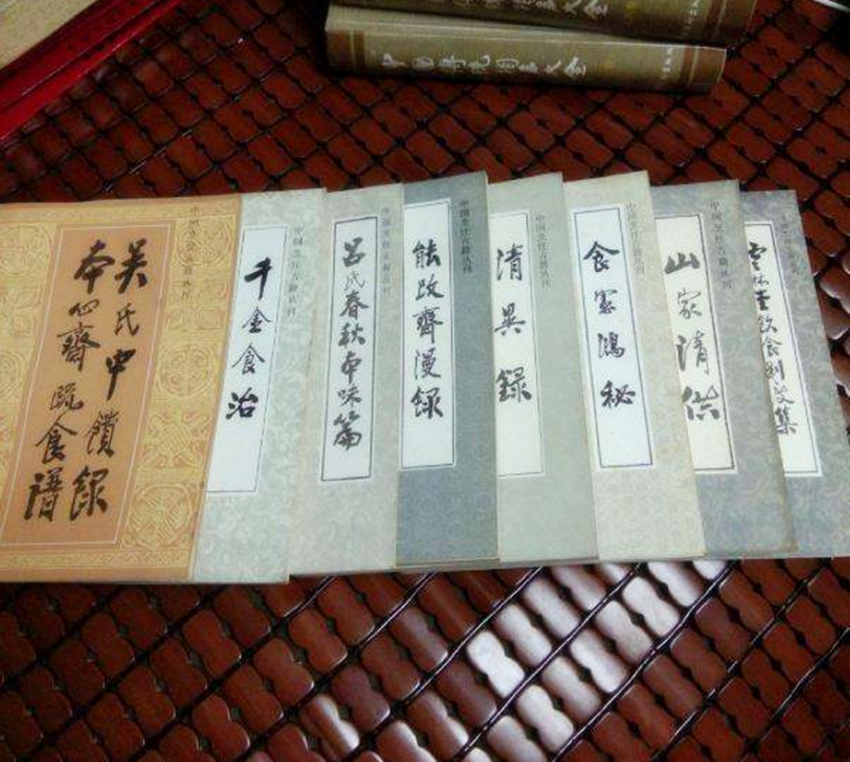 中国
大全
中国烹饪古籍丛刊
吴氏中馈録
本心齋疏食谱
中国烹饪古籍丛刊
千金食治
中国烹饪古籍丛刊
吕氏春秋本味篇
中国烹饪古籍丛刊
能改齋漫録
中国烹饪古籍丛刊
清異録
中国烹饪古籍丛刊
食宪鴻秘
中国烹饪古籍丛刊
山家清供
云林堂飲食制度集